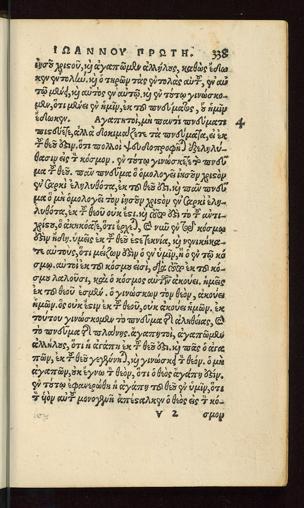 ΙΩΑΝΝΟΥ ΠΡΩΤΗ. 338
ἰησοῦ χριστοῦ, καὶ ἀγαπῶμεν ἀλλήλους, καθὼς ἔδω
κεν ἐντολήν. καὶ ὁ τηρῶν τὰς ἐντολὰς αὐτοῦ, ἐν αὐ
τῷ μένει, καὶ αὐτὸς ἐν αὐτῷ. καὶ ἐν τούτῳ γινώσκο
μεν, ὅτι μένει ἐν ἡμῖν, ἐκ τοῦ πνεύματος, οὗ ἡμῖν
ἔδωκεν. Ἀγαπητοὶ, μὴ παντὶ πνεύματι 4
πιστεύετε, ἀλλὰ δοκιμάζετε τὰ πνεύματα, εἰ ἐκ
τοῦ θεοῦ ἐστιν, ὅτι πολλοὶ ψευδοπροφῆται ἐξεληλύ
θασιν εἰς τὸν κόσμον. ἐν τούτῳ γινώσκετε τὸ πνεῦ
μα τοῦ θεοῦ. πᾶν πνεῦμα ὃ ὁμολογεῖ ἰησοῦν χριστὸν
ἐν σαρκὶ ἐληλυθότα, ἐκ τοῦ θεοῦ ἐστι. καὶ πᾶν πνεῦ
μα ὃ μὴ ὁμολογεῖ τὸν ἰησοῦν χριστὸν ἐν σαρκὶ ἐλη
λυθότα, ἐκ τοῦ θεοῦ οὐκ ἔστι. καὶ τοῦτό ἐστι τὸ τοῦ ἀντι
χρίστου, ὃ ἀκηκόατε, ὅτι ἔρχεται, καὶ νῦν ἐν τῷ κόσμῳ
ἐστὶν ἤδη. ὑμεῖς ἐκ τοῦ θεοῦ ἐστε τεκνία, καὶ νενικήκα
τε αὐτοὺς, ὅτι μείζων ἐστὶν ὁ ἐν ὑμῖν, ἢ ὁ ἐν τῷ κό
σμῳ. αὐτοὶ ἐκ τοῦ κόσμου εἰσὶ, διὰ τοῦτο ἐκ τοῦ κό
σμου λαλοῦσι, καὶ ὁ κόσμος αὐτῶν ἀκούει, ἡμεῖς
ἐκ τοῦ θεοῦ ἐσμέν. ὁ γινώσκων τὸν θεὸν, ἀκούει
ἡμῶν. ὃς οὐκ ἔστιν ἐκ τοῦ θεοῦ, οὐκ ἀκούει ἡμῶν. ἐκ
τούτου γινώσκομεν τὸ πνεῦμα τῆς ἀληθείας, καὶ
τὸ πνεῦμα τῆς πλάνης. ἀγαπητοὶ, ἀγαπῶμεν
ἀλλήλους, ὅτι ἡ ἀγάπη ἐκ τοῦ θεοῦ ἐστι. καὶ πᾶς ὁ ἀγα
πῶν, ἐκ τοῦ θεοῦ γεγέννηται, καὶ γινώσκει τὸν θεόν. ὁ μὴ
ἀγαπῶν, οὐκ ἔγνω τὸν θεὸν, ὅτι ὁ θεὸς ἀγάπη ἐστίν.
ἐν τούτῳ ἐφανερώθη ἡ ἀγάπη τοῦ θεοῦ ἐν ἡμῖν, ὅτι
τὸν υἱὸν αὐτοῦ μονογενῆ ἀπέσταλκεν ὁ θεὸς εἰς τὸν κό
V 2 σμον